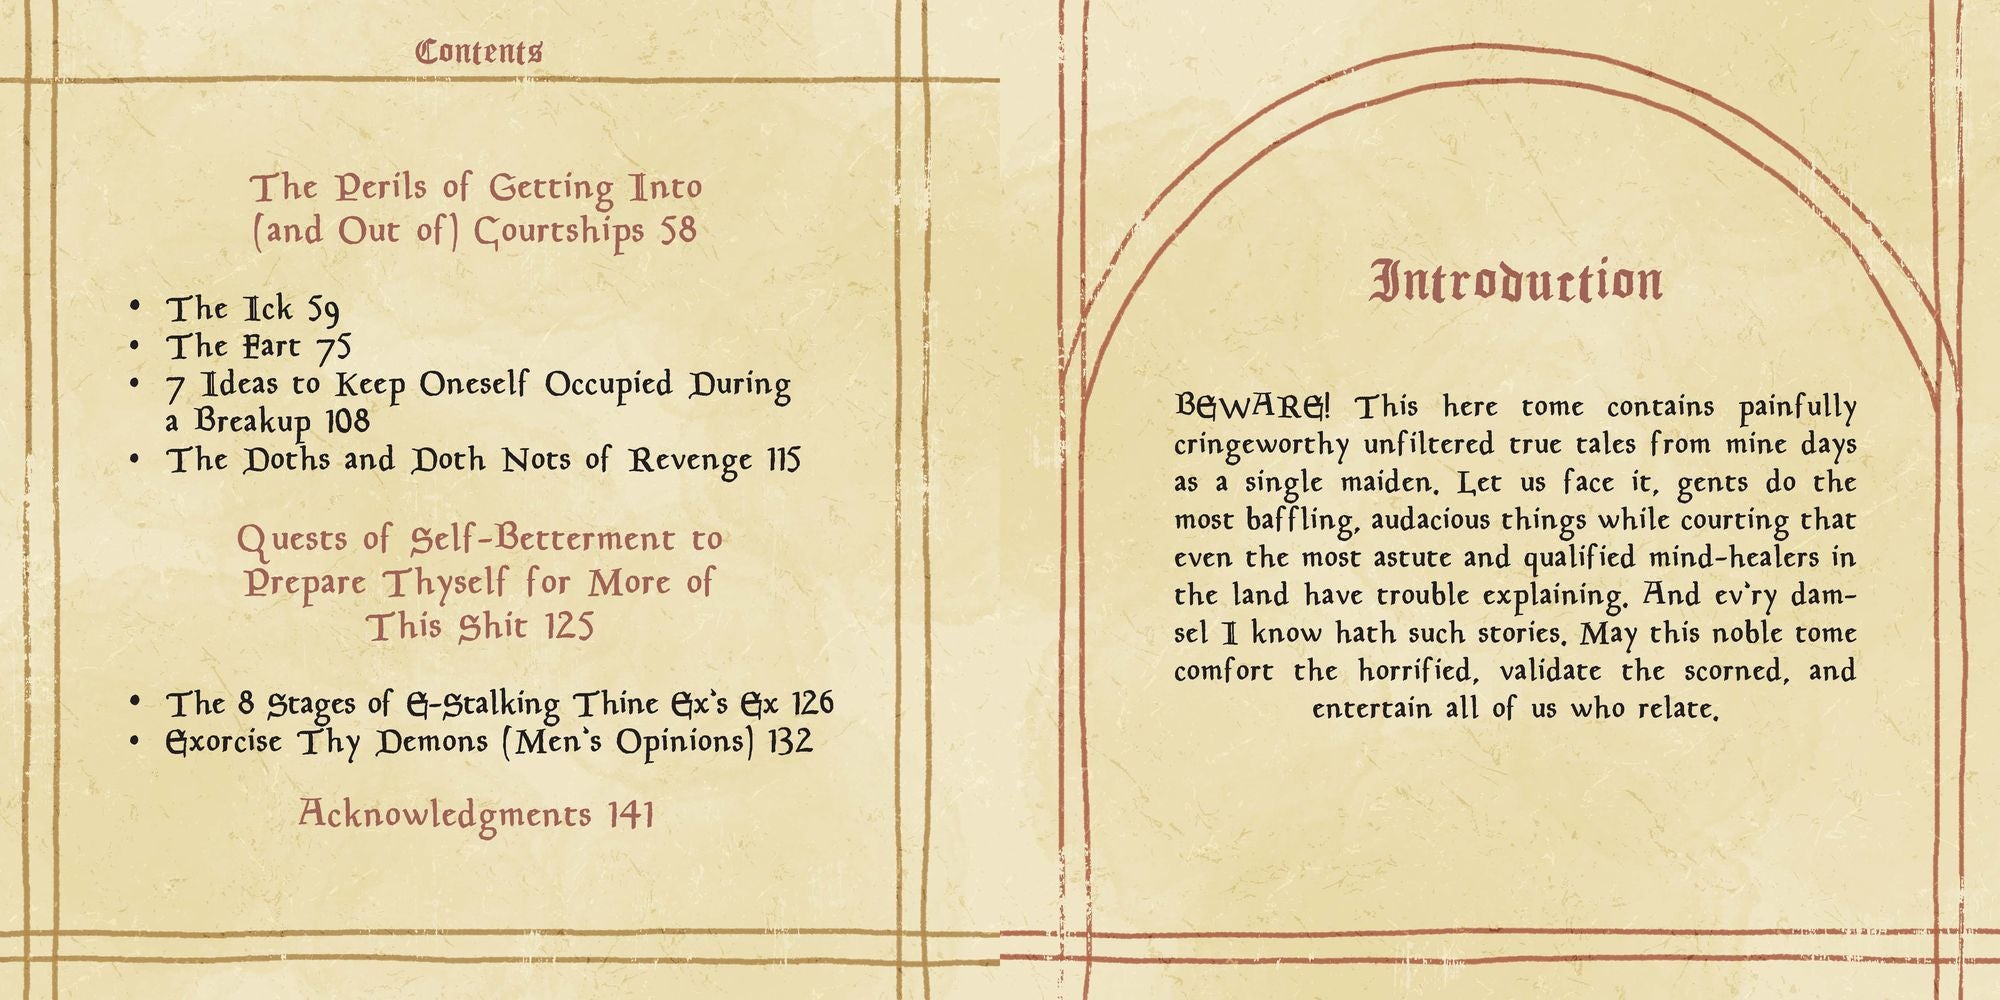 Contents
The Perils of Getting Into
(and Out of) Courtships 58
• The Ick 59
• The Fart 75
• 7 Ideas to Keep Oneself Occupied During
a Breakup 108
• The Doths and Doth Nots of Revenge 115
Quests of Self-Betterment to
Prepare Thyself for More of
This Shit 125
• The 8 Stages of E-Stalking Thine Ex's Ex 126
• Exorcise Thy Demons (Men's Opinions) 132
Acknowledgments 141
Introduction
BEWARE! This here tome contains painfully
cringeworthy unfiltered true tales from mine days
as a single maiden. Let us face it, gents do the
most baffling, audacious things while courting that
even the most astute and qualified mind-healers in
the land have trouble explaining. And ev'ry dam-
sel I know hath such stories. May this noble tome
comfort the horrified, validate the scorned, and
entertain all of us who relate.